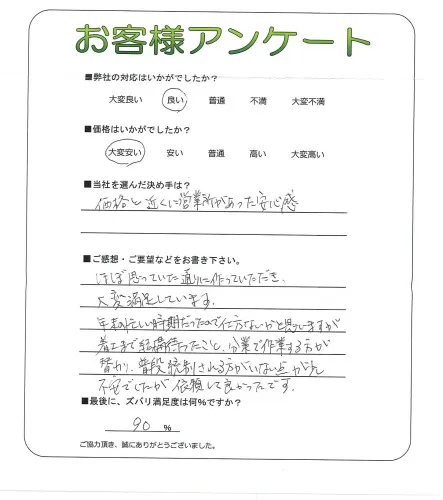 お客様アンケート
■弊社の対応はいかがでしたか?
大変良い 良い 普通 不満 大変不満
■価格はいかがでしたか?
大変安い 安い 普通 高い 大変高い
■当社を選んだ決め手は?
価格と近くに営業所があった安心感
■ご感想・ご要望などをお書き下さい。
ほぼ思っていた通りに作っていただき、
大変満足しています。
年末の忙しい時期だったので仕方ないかと思っていますが
着工まで結構待ったこと、分業で作業する方が
替わり、普段統制される方がいない点が少し
不安でしたが依頼して良かったです。
■最後に、ズバリ満足度は何%ですか?
90 %
ご協力頂き、誠にありがとうございました。